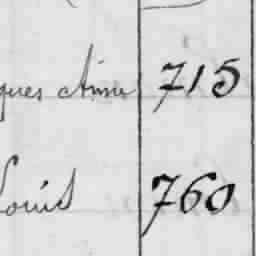 ques Aimé 715
Louis 760